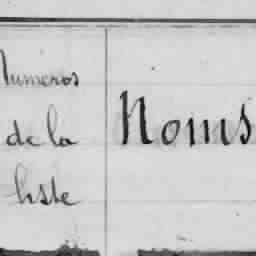 Numeros
de la
liste
Noms